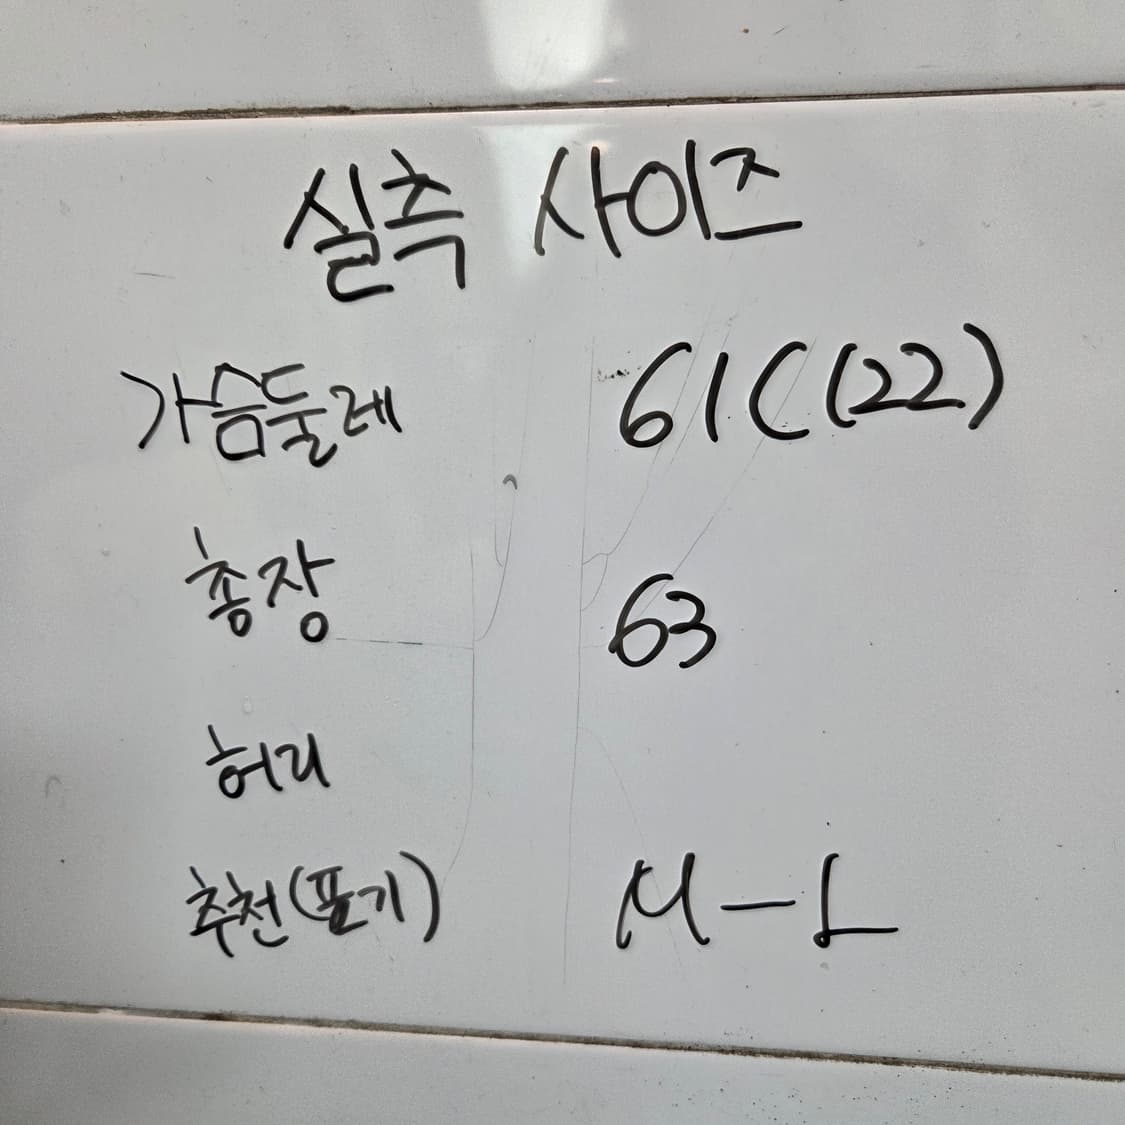 실측 사이즈
가슴둘레 61C(22)
총장 63
허리
추천(표기) M-L